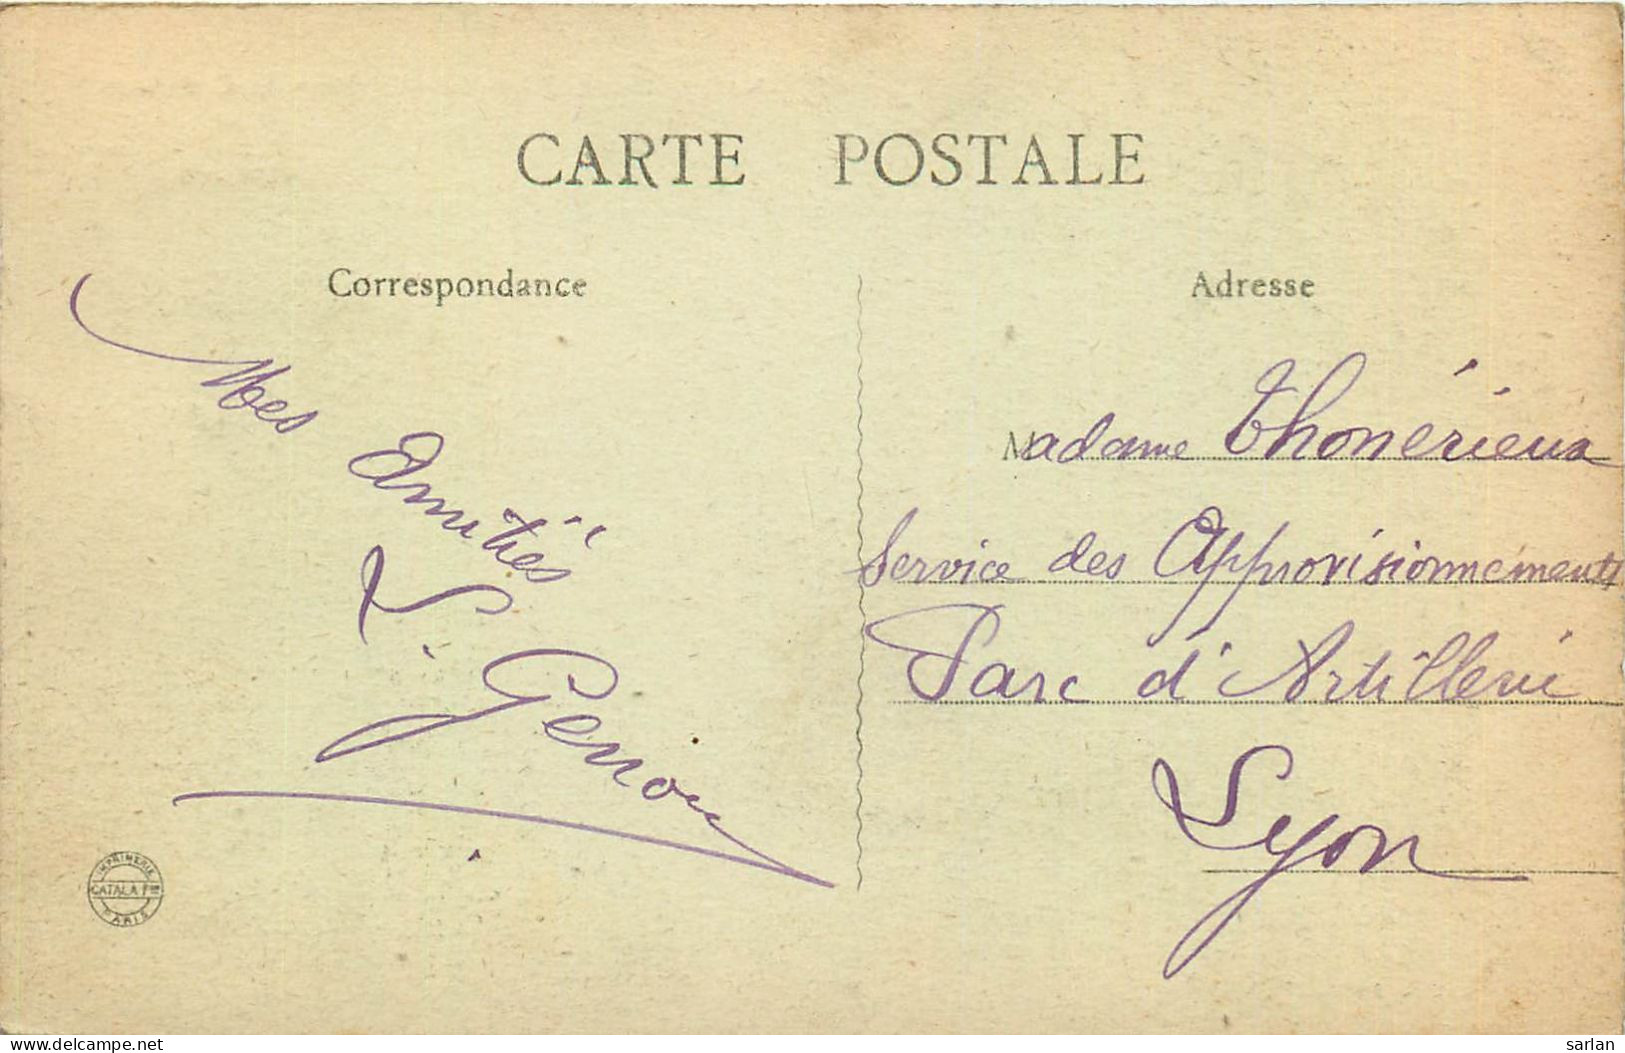 CARTE POSTALE
Correspondance
Mes
Amitiés
L. Genou
IMPRIMERIE
CATALA Frères
PARIS
Adresse
Madame Thonérieux
Service des Approvisionnements
Parc d'Artillerie
Lyon
www.delcampe.net
sarlan